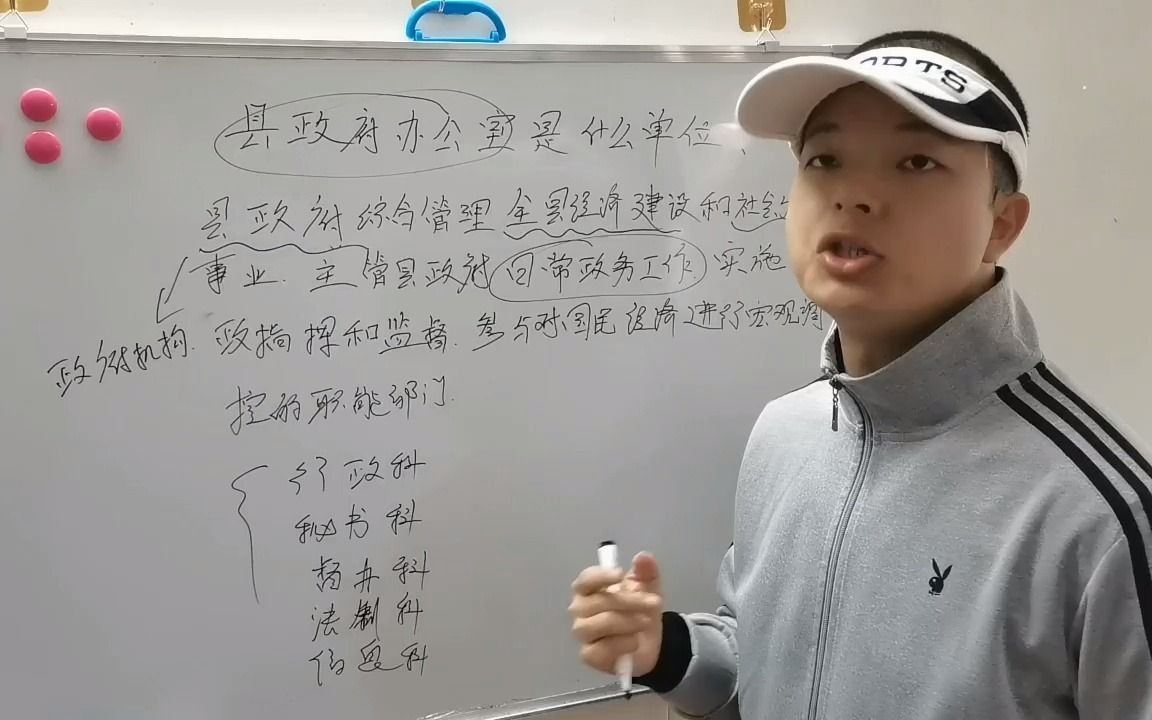 县政府办公室是什么单位、
县政府综合管理全县经济建设和社会
事业、主管县政府日常政务工作、实施
政府机构、政指挥和监督、参与对国民经济进行宏观调
控的职能部门、
行政科
秘书科
督办科
法制科
信息科
ORTS